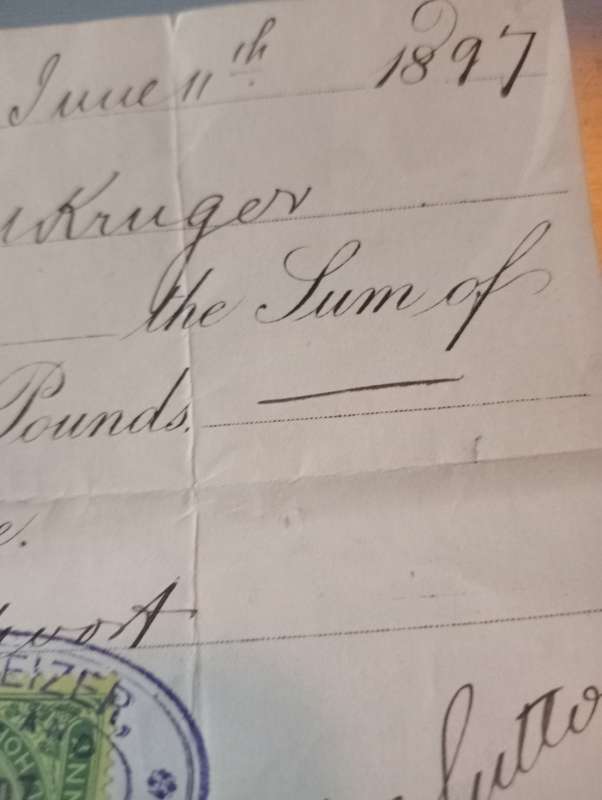 June 11th 1897
Kruger
the Sum of
Pounds.
e.
EIZER,